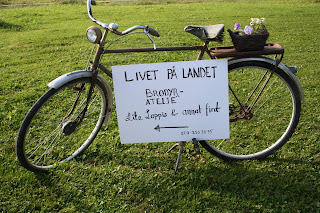 LIVET PÅ LANDET
BRODYR-
ATELJE
Lite Loppis & annat fint